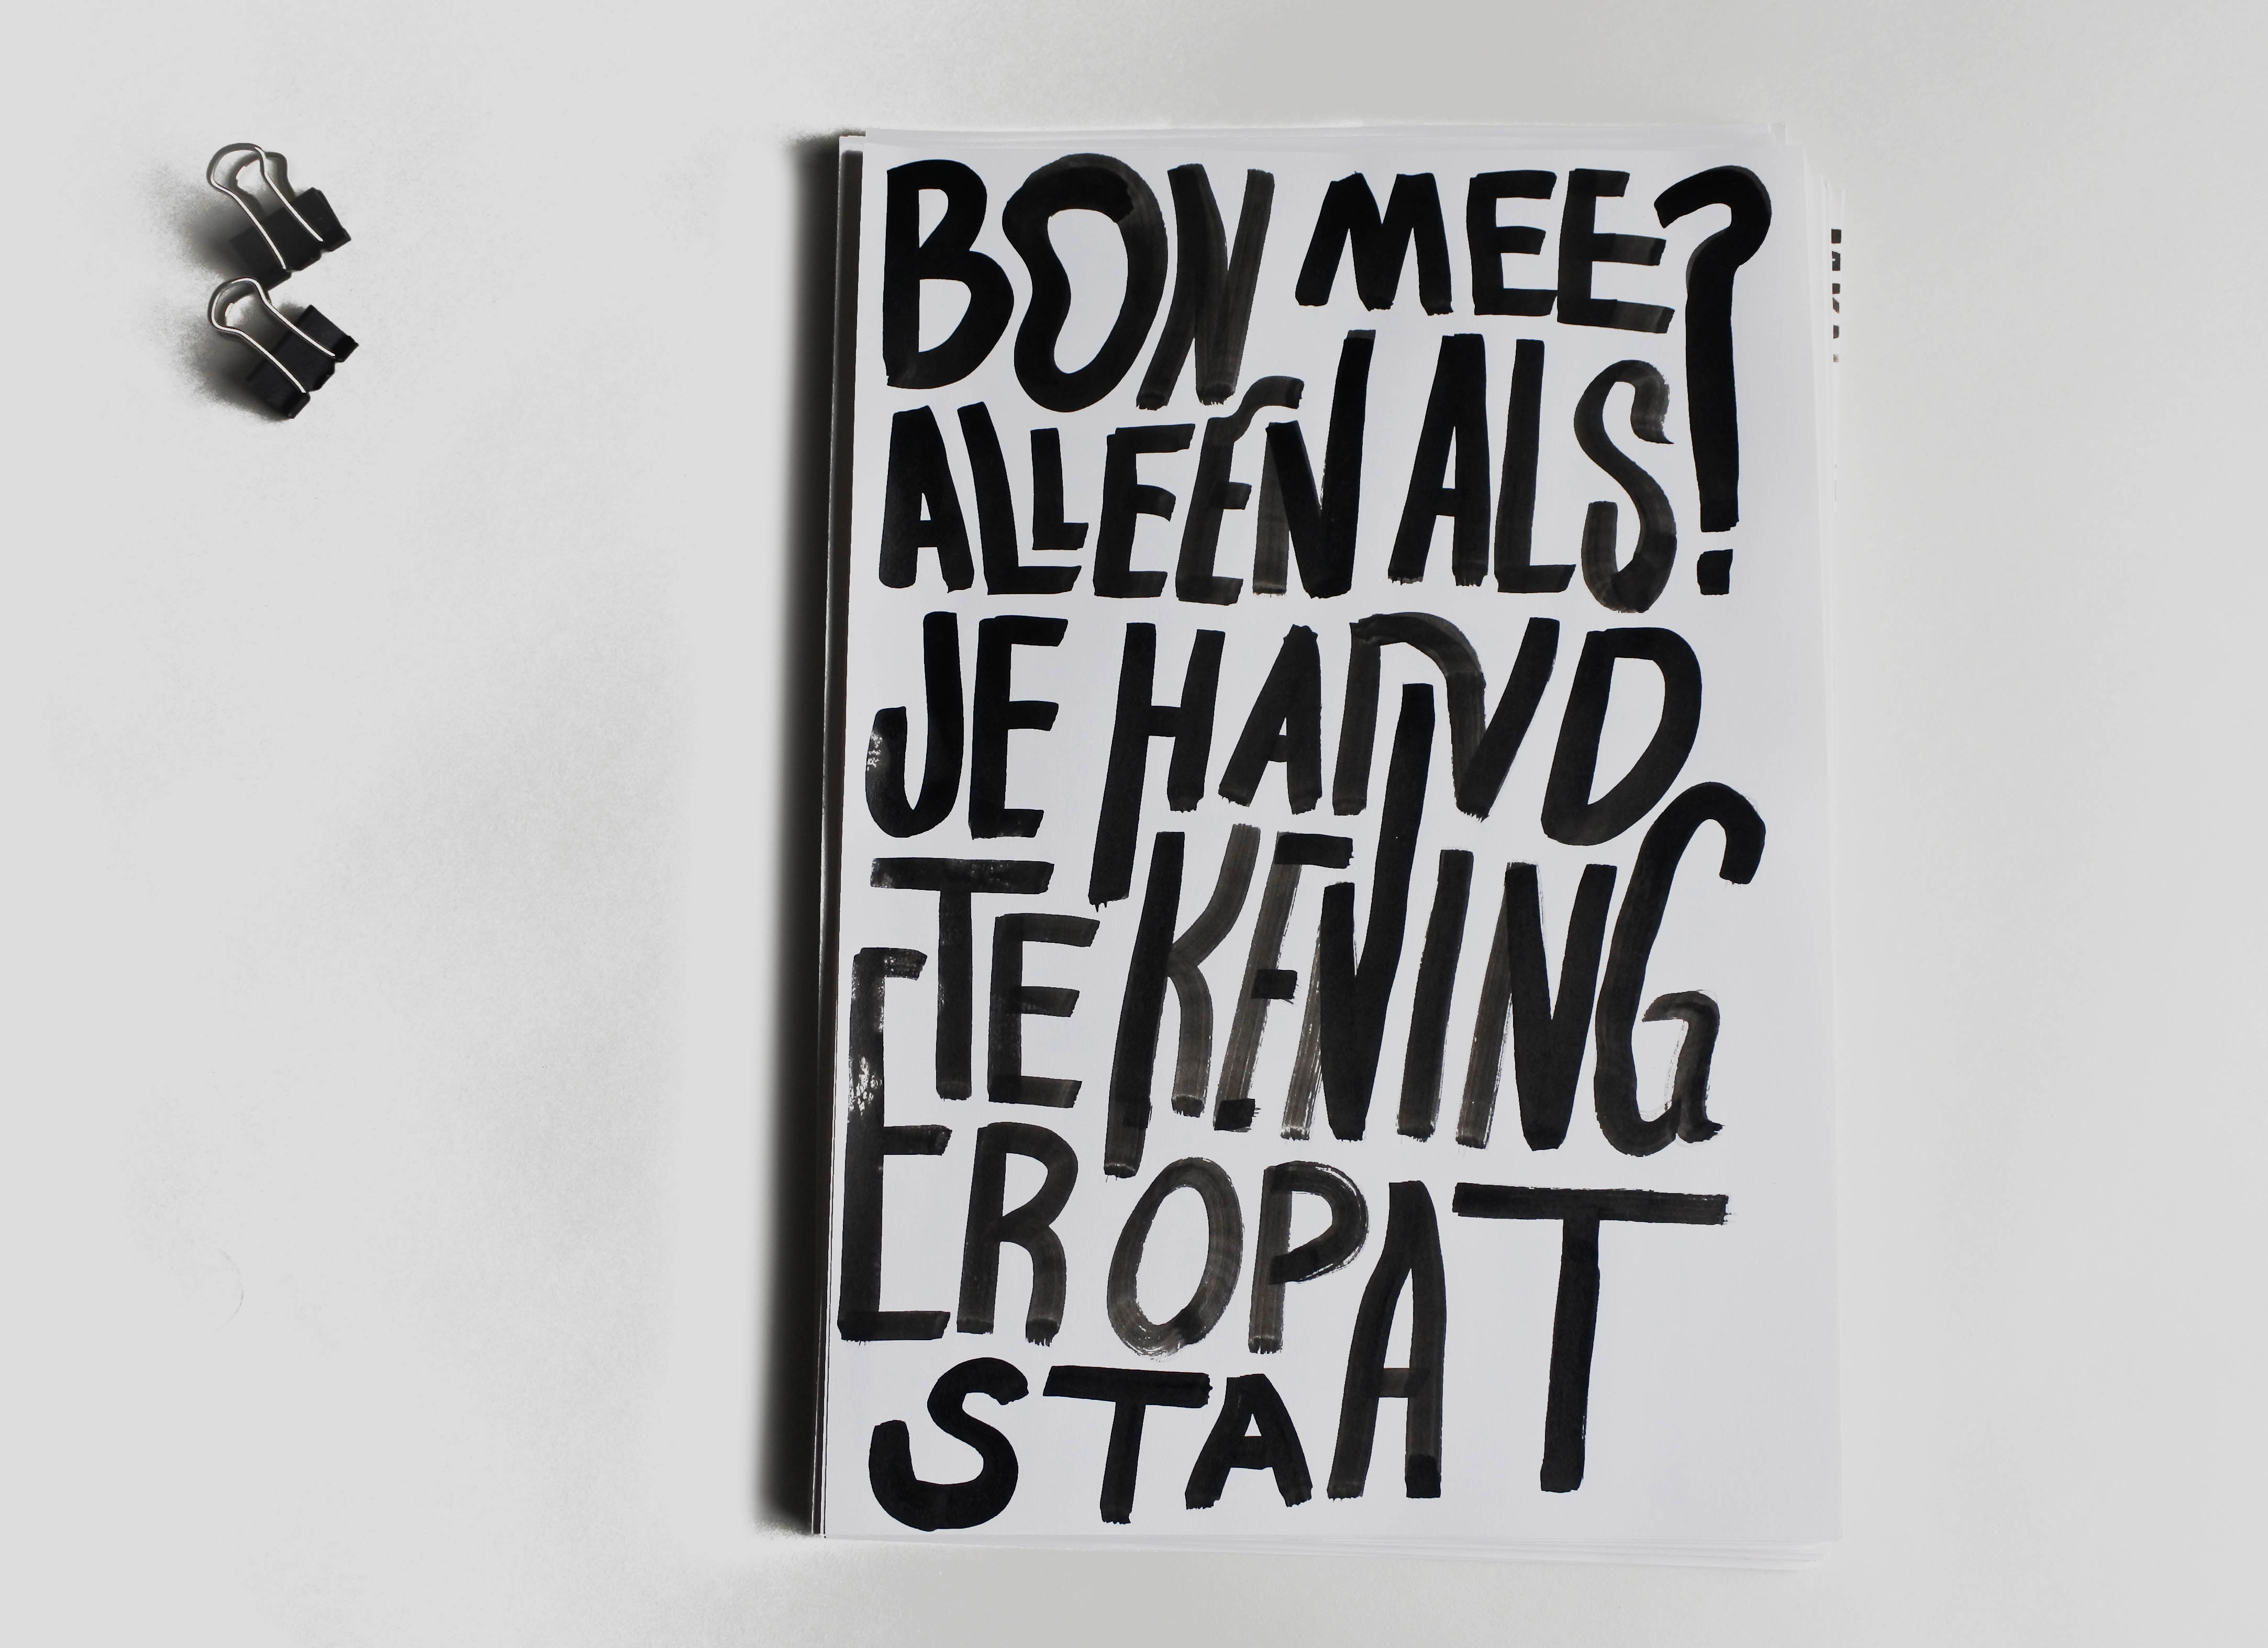 BON MEE?
ALLEÉN ALS
JE HAND
TEKENING
ER OP
STAAT